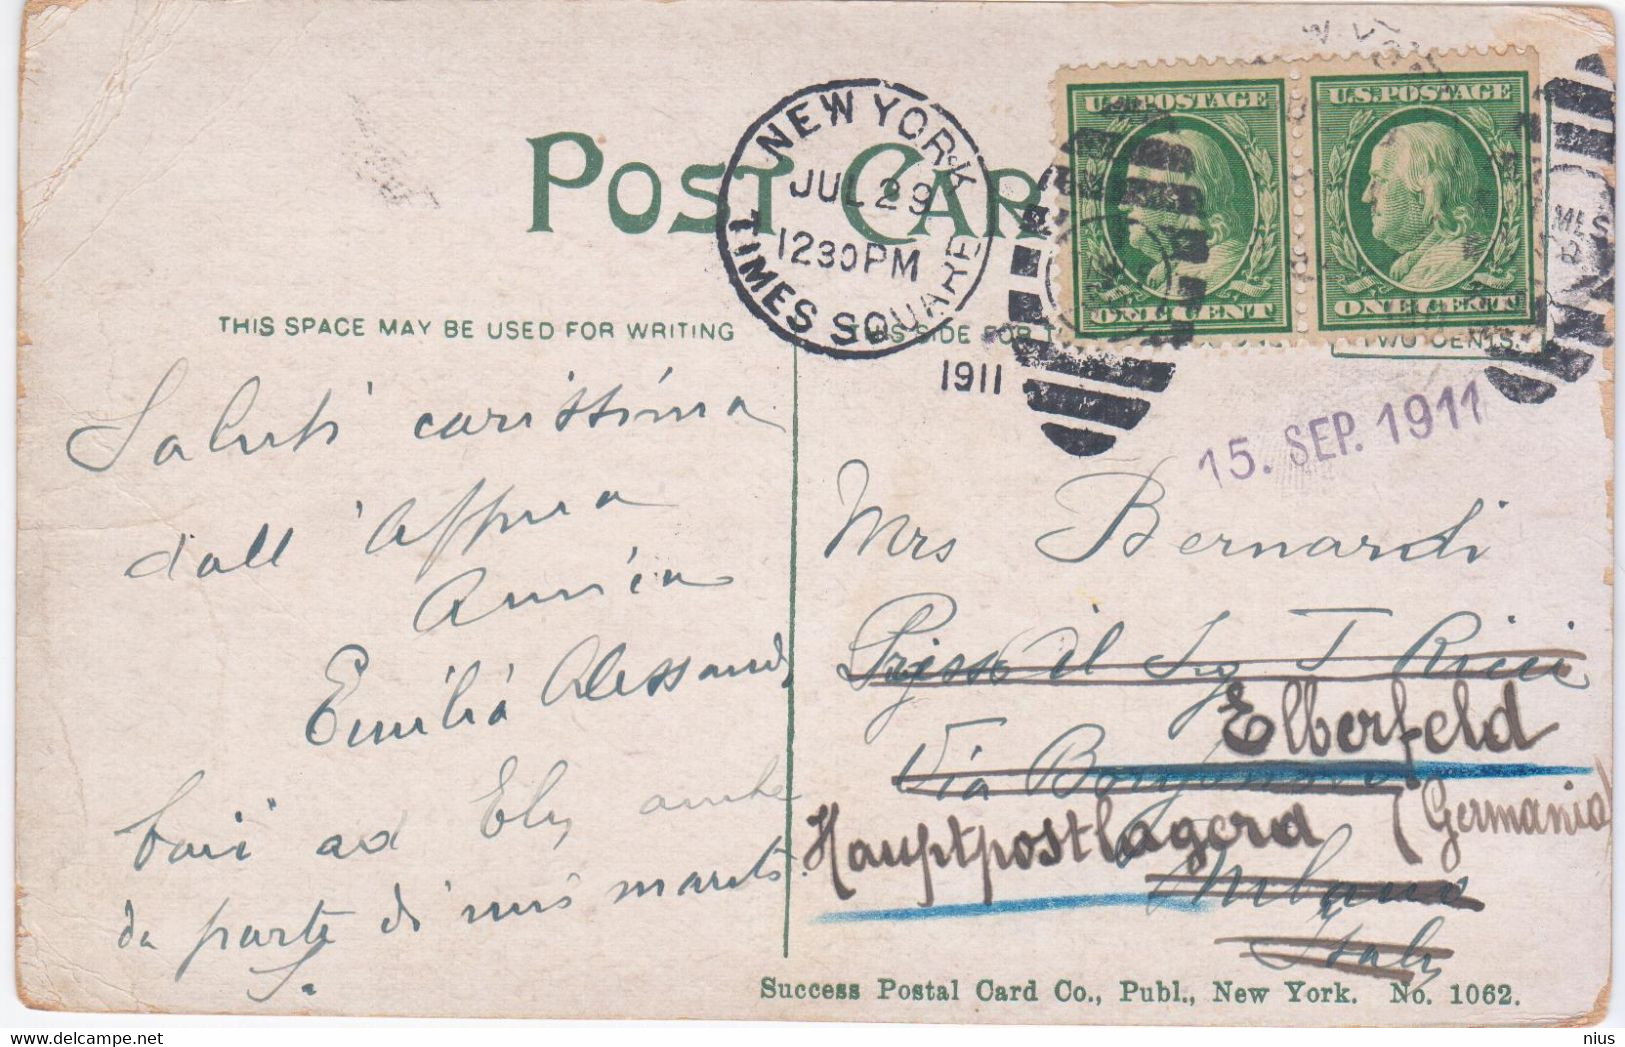 POST CARD
NEW YORK
JUL 29
1230 PM
TIMES SQUARE
1911
U.S. POSTAGE
ONE CENT
U.S. POSTAGE
ONE CENT
THIS SPACE MAY BE USED FOR WRITING
THIS SIDE FOR
TWO CENTS.
15. SEP. 1911
Saluti carissima
dall'
Amica
Emilia Alessandri
baci ad Ely anche
da parte di mio marito.
Mrs Bernardi
Presso il Sig T Ricci
Elberfeld
Via
Hauptpostlagernd (Germania)
Milano
Italy
Success Postal Card Co., Publ., New York. No. 1062.
www.delcampe.net
nius